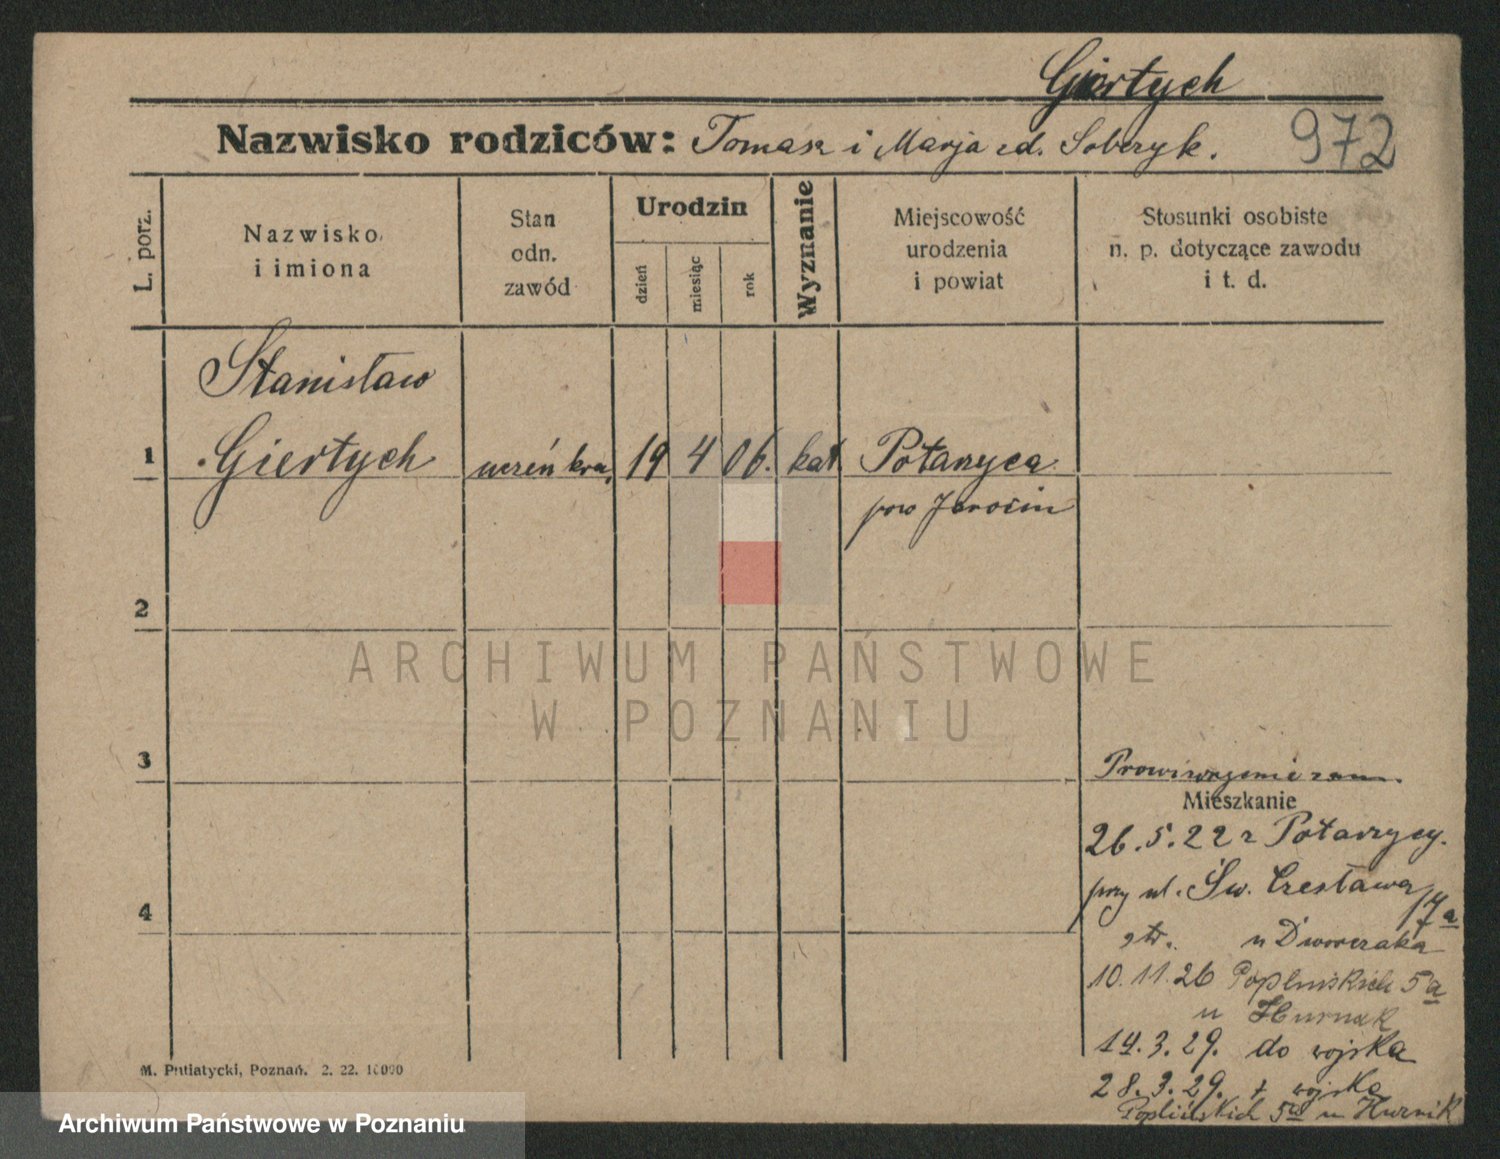 Giertych
Nazwisko rodziców: Tomasz i Marja zd. Sobczyk.
972
L. porz.
Nazwisko
i imiona
Stan
odn.
zawód
Urodzin
dzień
miesiąc
rok
Wyznanie
Miejscowość
urodzenia
i powiat
Stosunki osobiste
n. p. dotyczące zawodu
i t. d.
Stanisław
1 Giertych uczeń kra. 19 4 06. kat Potarzyca
pow Jarocin
2
ARCHIWUM PAŃSTWOWE
W POZNANIU
3
Mieszkanie
26.5.22 z Potarzycy.
przy ul. Św. Czesława 17a
4
u Dworczaka
10.11.26 Poplińskich 5a
u Hurnik
14.3.29. do wojska
28.3.29. z wojska
Poplińskich 5a u Hurnik
M. Putiatycki, Poznań. 2. 22. 10000
Archiwum Państwowe w Poznaniu